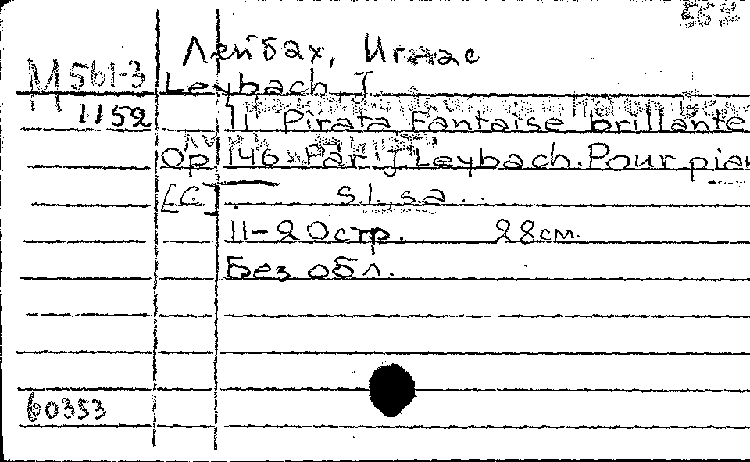 Лейбах, Игнас
М 561-3 Leybach J.
1152 Il Pirata Fantaise brillante
Op 146 Par J Leybach. Pour pian
[G] s.l, s.a..
11-20стр. 28см.
Без обл.
60353